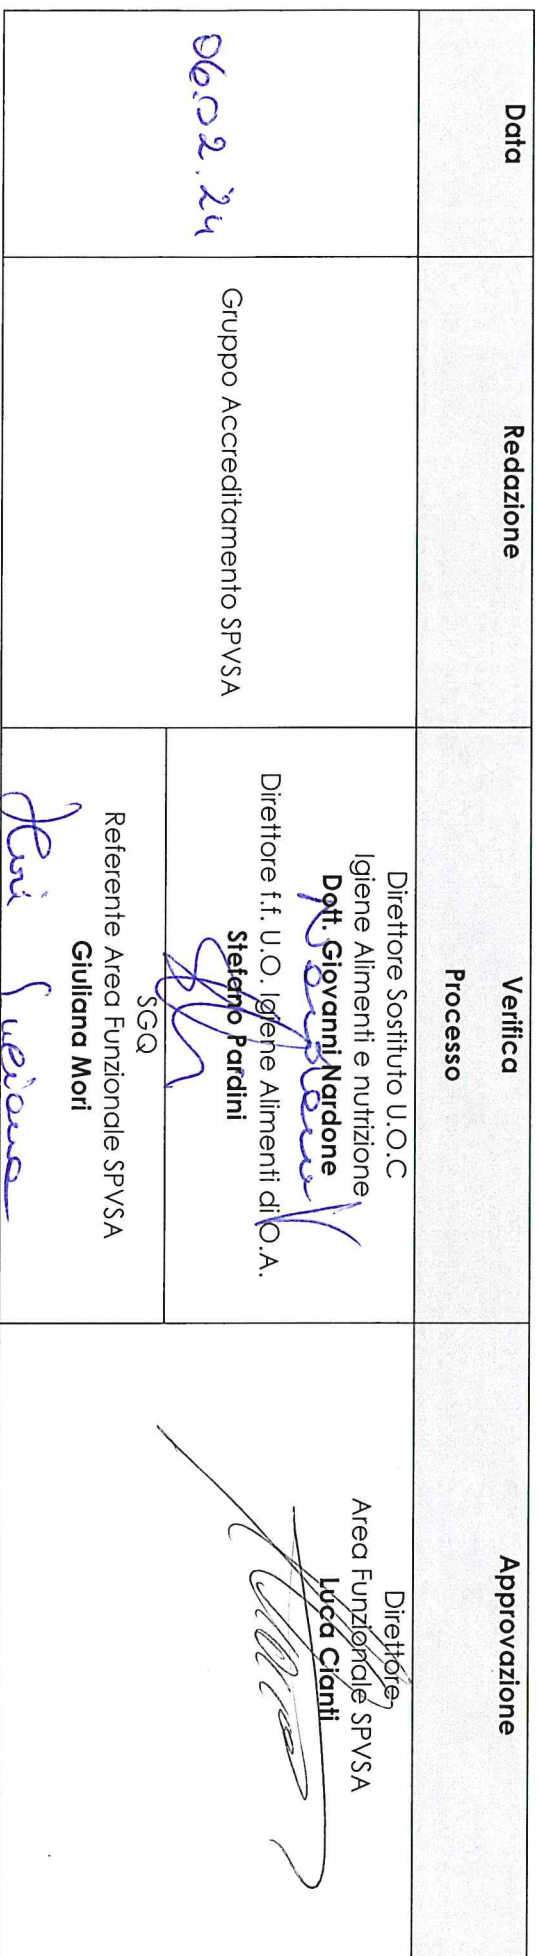 Data
Redazione
Verifica
Processo
Approvazione
06.02.24
Gruppo Accreditamento SPVSA
Direttore Sostituto U.O.C
Igiene Alimenti e nutrizione
Dott. Giovanni Nardone
Nardone
Direttore f.f. U.O. Igiene Alimenti di O.A.
Stefano Pardini
SGQ
Referente Area Funzionale SPVSA
Giuliana Mori
Mori Giuliana
Direttore
Area Funzionale SPVSA
Luca Cianti